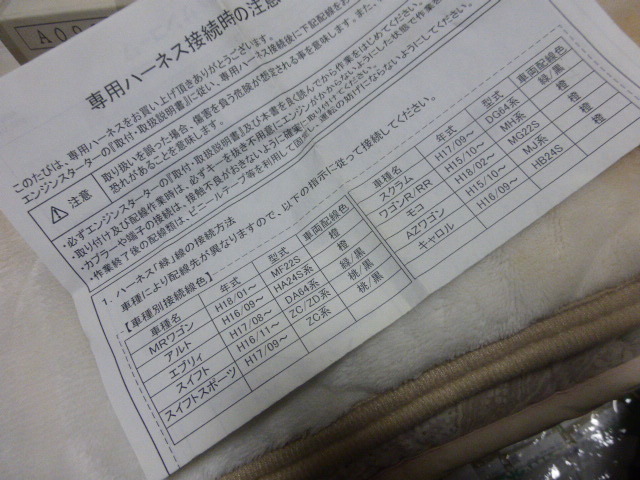 A00
専用ハーネス接続時の注意
このたびは、専用ハーネスをお買い上げ頂きありがとうございます。
エンジンスターターの『取付・取扱説明書』に従い、専用ハーネス接続後に下記配線をお
注意
取り扱いを誤った場合、傷害を負う危険が想定される事を意味します。また、
恐れがあることを意味します。
・必ずエンジンスターターの『取付・取扱説明書』及び本書を良く読んでから作業をはじめてください。
・取り付け及び配線作業時は、必ずキーを抜き不用意にエンジンがかからないようにした状態で作業を
・カプラーや端子の接続は、接触不良がおきないように確実に取り付けてください。
・作業終了後の配線類は、ビニールテープ等を利用して固定し、運転の妨げにならないようにしてください。
1. ハーネス「緑」線の接続方法
車種により配線先が異なりますので、以下の指示に従って接続してください。
【車種別接続線色】
車種名 年式 型式 車両配線色
MRワゴン H18/01～ MF22S 橙
アルト H16/09～ HA24S系 橙
エブリィ H17/08～ DA64系 緑/黒
スイフト H16/11～ ZC/ZD系 桃/黒
スイフトスポーツ H17/09～ ZC系 桃/黒
車種名 年式 型式 車両配線色
スクラム H17/09～ DG64系 緑/黒
ワゴンR/RR H15/10～ MH系 橙
モコ H18/02～ MG22S 橙
AZワゴン H15/10～ MJ系 橙
キャロル H16/09～ HB24S 橙